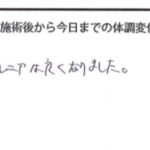 施術後から今日までの体調変化
ルニアは良くなりました。